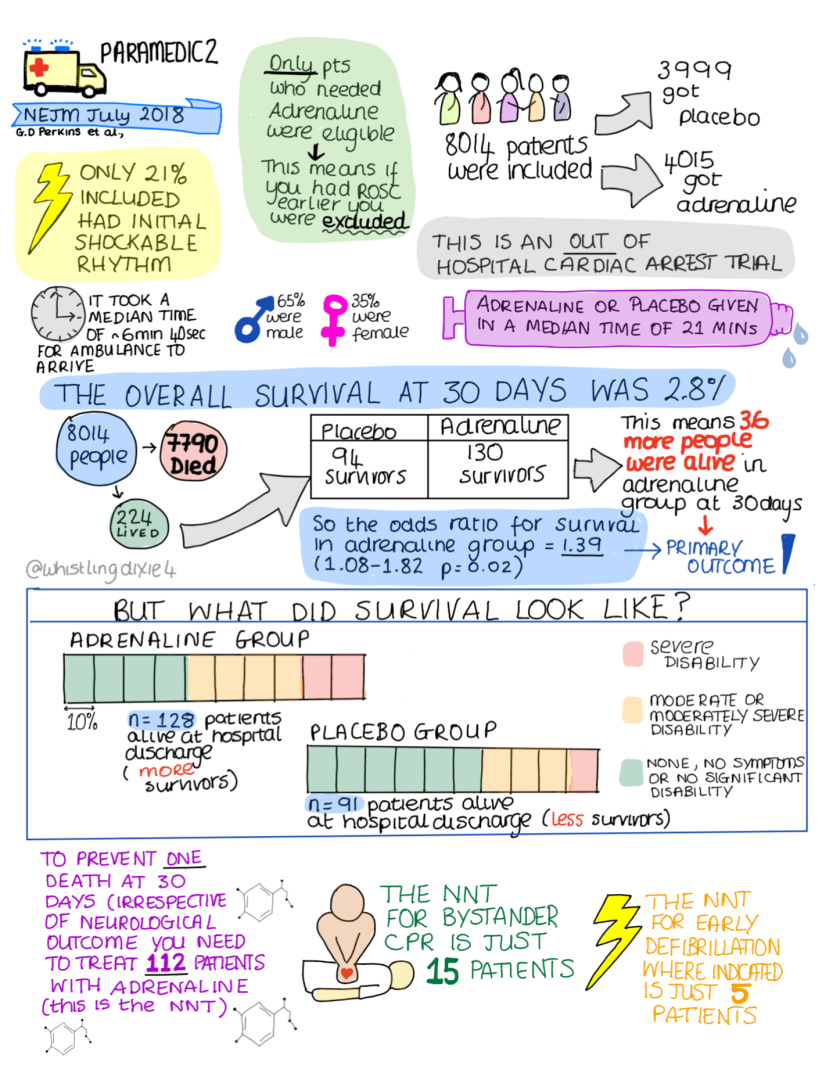 PARAMEDIC2
NEJM July 2018
G.D Perkins et al.,
ONLY 21%
INCLUDED
HAD INITIAL
SHOCKABLE
RHYTHM
Only pts
who needed
Adrenaline
were eligible
This means if
you had ROSC
earlier you
were excluded
8014 patients
were included
3999
got
placebo
4015
got
adrenaline
THIS IS AN OUT OF
HOSPITAL CARDIAC ARREST TRIAL
IT TOOK A
MEDIAN TIME
OF ~6min 40sec
FOR AMBULANCE TO
ARRIVE
65%
were
male
35%
were
female
ADRENALINE OR PLACEBO GIVEN
IN A MEDIAN TIME OF 21 MINS
THE OVERALL SURVIVAL AT 30 DAYS WAS 2.8%
8014
people
7790
Died
224
LIVED
Placebo
94
survivors
Adrenaline
130
survivors
This means 36
more people
were alive in
adrenaline
group at 30days
So the odds ratio for survival
in adrenaline group = 1.39
(1.08-1.82 p=0.02)
PRIMARY
OUTCOME
@whistlingdixie4
BUT WHAT DID SURVIVAL LOOK LIKE?
ADRENALINE GROUP
10%
n=128 patients
alive at hospital
discharge
(more
survivors)
PLACEBO GROUP
n=91 patients alive
at hospital discharge (less survivors)
severe
DISABILITY
MODERATE OR
MODERATELY SEVERE
DISABILITY
NONE, NO SYMPTOMS
OR NO SIGNIFICANT
DISABILITY
TO PREVENT ONE
DEATH AT 30
DAYS (IRRESPECTIVE
OF NEUROLOGICAL
OUTCOME YOU NEED
TO TREAT 112 PATIENTS
WITH ADRENALINE
(this is the NNT)
THE NNT
FOR BYSTANDER
CPR IS JUST
15 PATIENTS
THE NNT
FOR EARLY
DEFIBRILLATION
WHERE INDICATED
IS JUST 5
PATIENTS